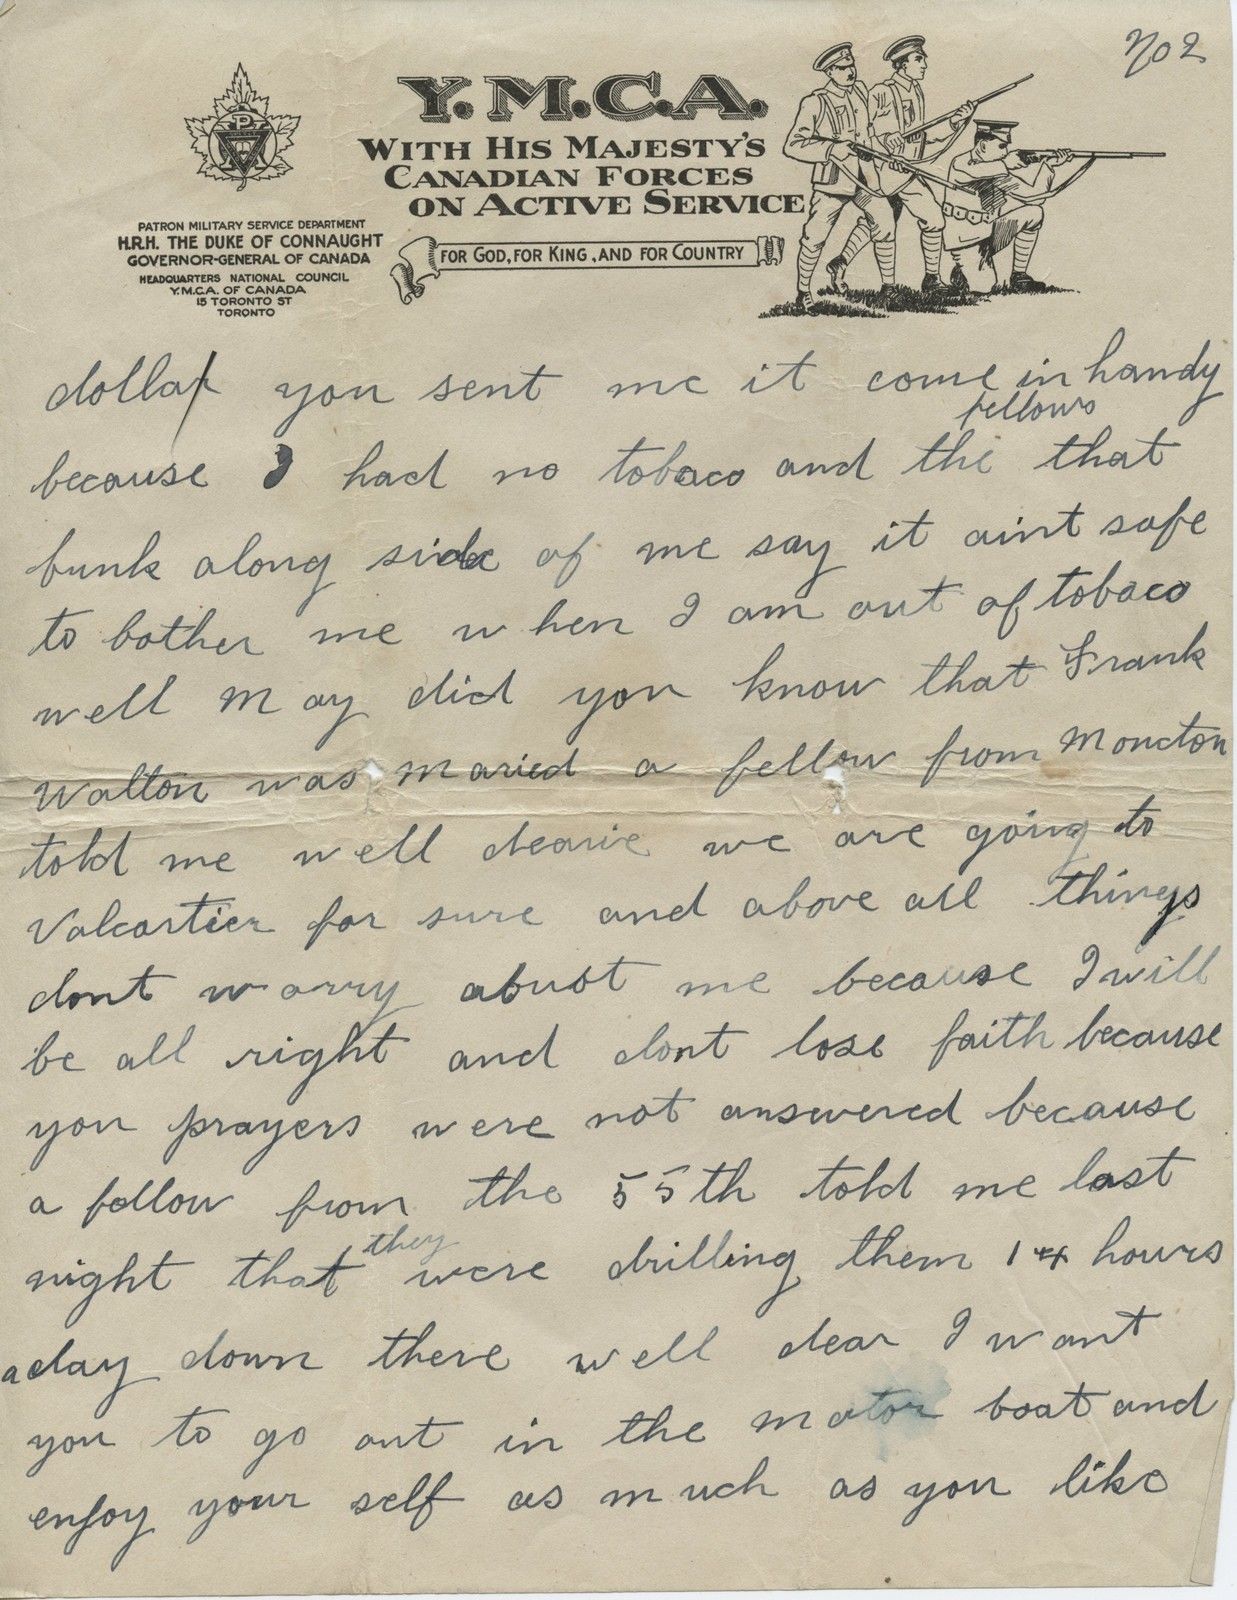 no 2
Y.M.C.A.
WITH HIS MAJESTY'S
CANADIAN FORCES
ON ACTIVE SERVICE
FOR GOD, FOR KING, AND FOR COUNTRY
PATRON MILITARY SERVICE DEPARTMENT
H.R.H. THE DUKE OF CONNAUGHT
GOVERNOR-GENERAL OF CANADA
HEADQUARTERS NATIONAL COUNCIL
Y.M.C.A. OF CANADA
15 TORONTO ST
TORONTO
dollar you sent me it come in handy
because I had no tobaco and the fellows that
bunk along side of me say it aint safe
to bother me when I am out of tobaco
well May did you know that Frank
Walton was maried a fellow from Moncton
told me well dearie we are going to
Valcartier for sure and above all things
dont worry about me because I will
be all right and dont lose faith because
you prayers were not answered because
a fellow from the 55th told me last
night that they were drilling them 14 hours
a day down there well dear I want
you to go out in the motor boat and
enjoy your self as much as you like